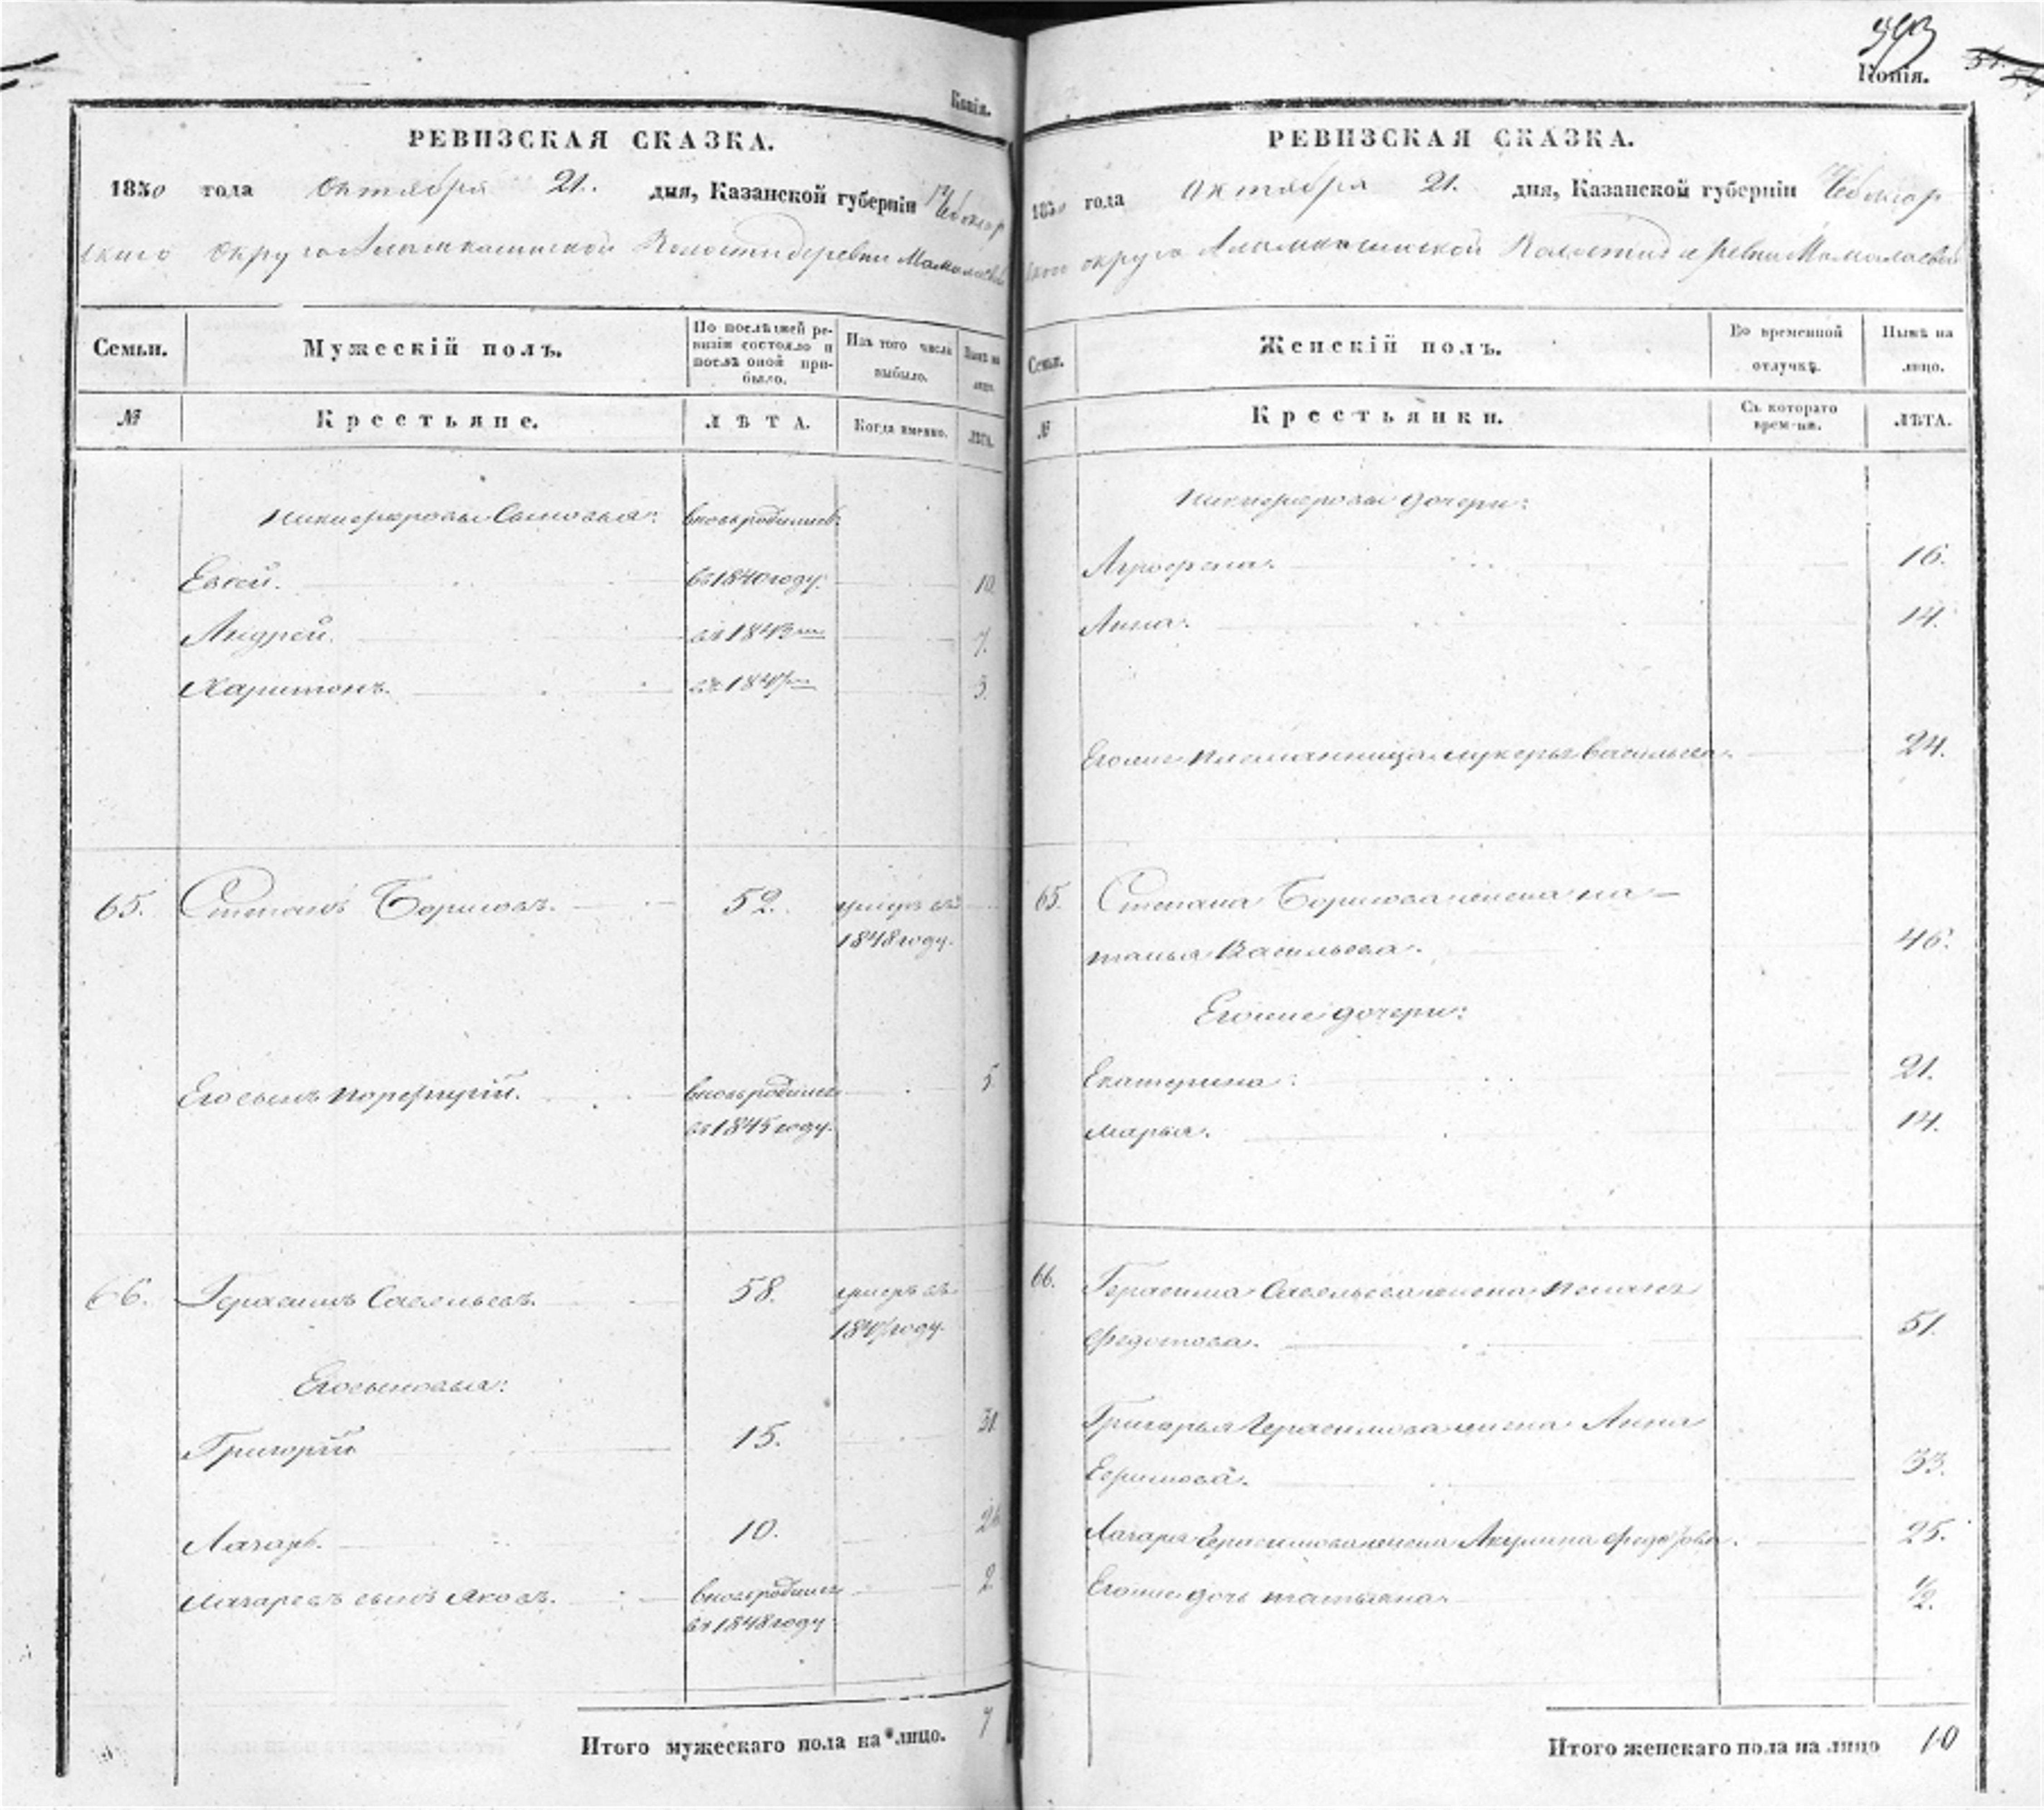 Копія.
РЕВИЗСКАЯ СКАЗКА.
1850 года Октября 21. дня, Казанской губерніи Чебоксар
скаго округа Волости деревни
Семьи.
Мужескій полъ.
По послѣдней ре-
визіи состояло и
послѣ оной при-
было.
Изъ того числа
выбыло.
Нынѣ на
лицо.
№
Крестьяне.
ЛѢТА.
Когда именно.
ЛѢТА.
Никифоровы Сыновья: вновьродились
Евсей. въ1840году. 10.
Андрей. въ1843мъ 7.
Харитонъ. въ1847мъ 3.
65. Степанъ Борисовъ. 52. умеръ въ
1848году.
Егосынъ Порфирій. вновьродился 5.
въ1845году.
66. Герасимъ Савельевъ. 58. умеръ въ
1847году.
Егосыновья:
Григорій 15. 31.
Лазарь. 10. 26
Лазаревъ сынъ Яковъ. вновьродился 2.
въ1848году.
Итого мужескаго пола на лицо. 7
Копія.
РЕВИЗСКАЯ СКАЗКА.
1850 года Октября 21. дня, Казанской губерніи Чебоксар
скаго округа Волости деревни
Семьи.
Женскій полъ.
Во временной
отлучкѣ.
Нынѣ на
лицо.
№
Крестьянки.
Съ котораго
времени.
ЛѢТА.
Никифоровы дочери:
Агрофена. 16.
Анна. 14.
Егоже племянница Васильева. 24.
65. Степана Борисова жена На-
талья Васильева. 46.
Егоже дочери:
Екатерина. 21.
Марья. 14.
66. Герасима Савельева жена
Федотова. 51.
Григорья Герасимова жена Анна
Ефимова. 33.
Лазаря Герасимова жена Акулина Федорова. 25.
Егоже дочь Татьяна. 1/2.
Итого женскаго пола на лицо 10